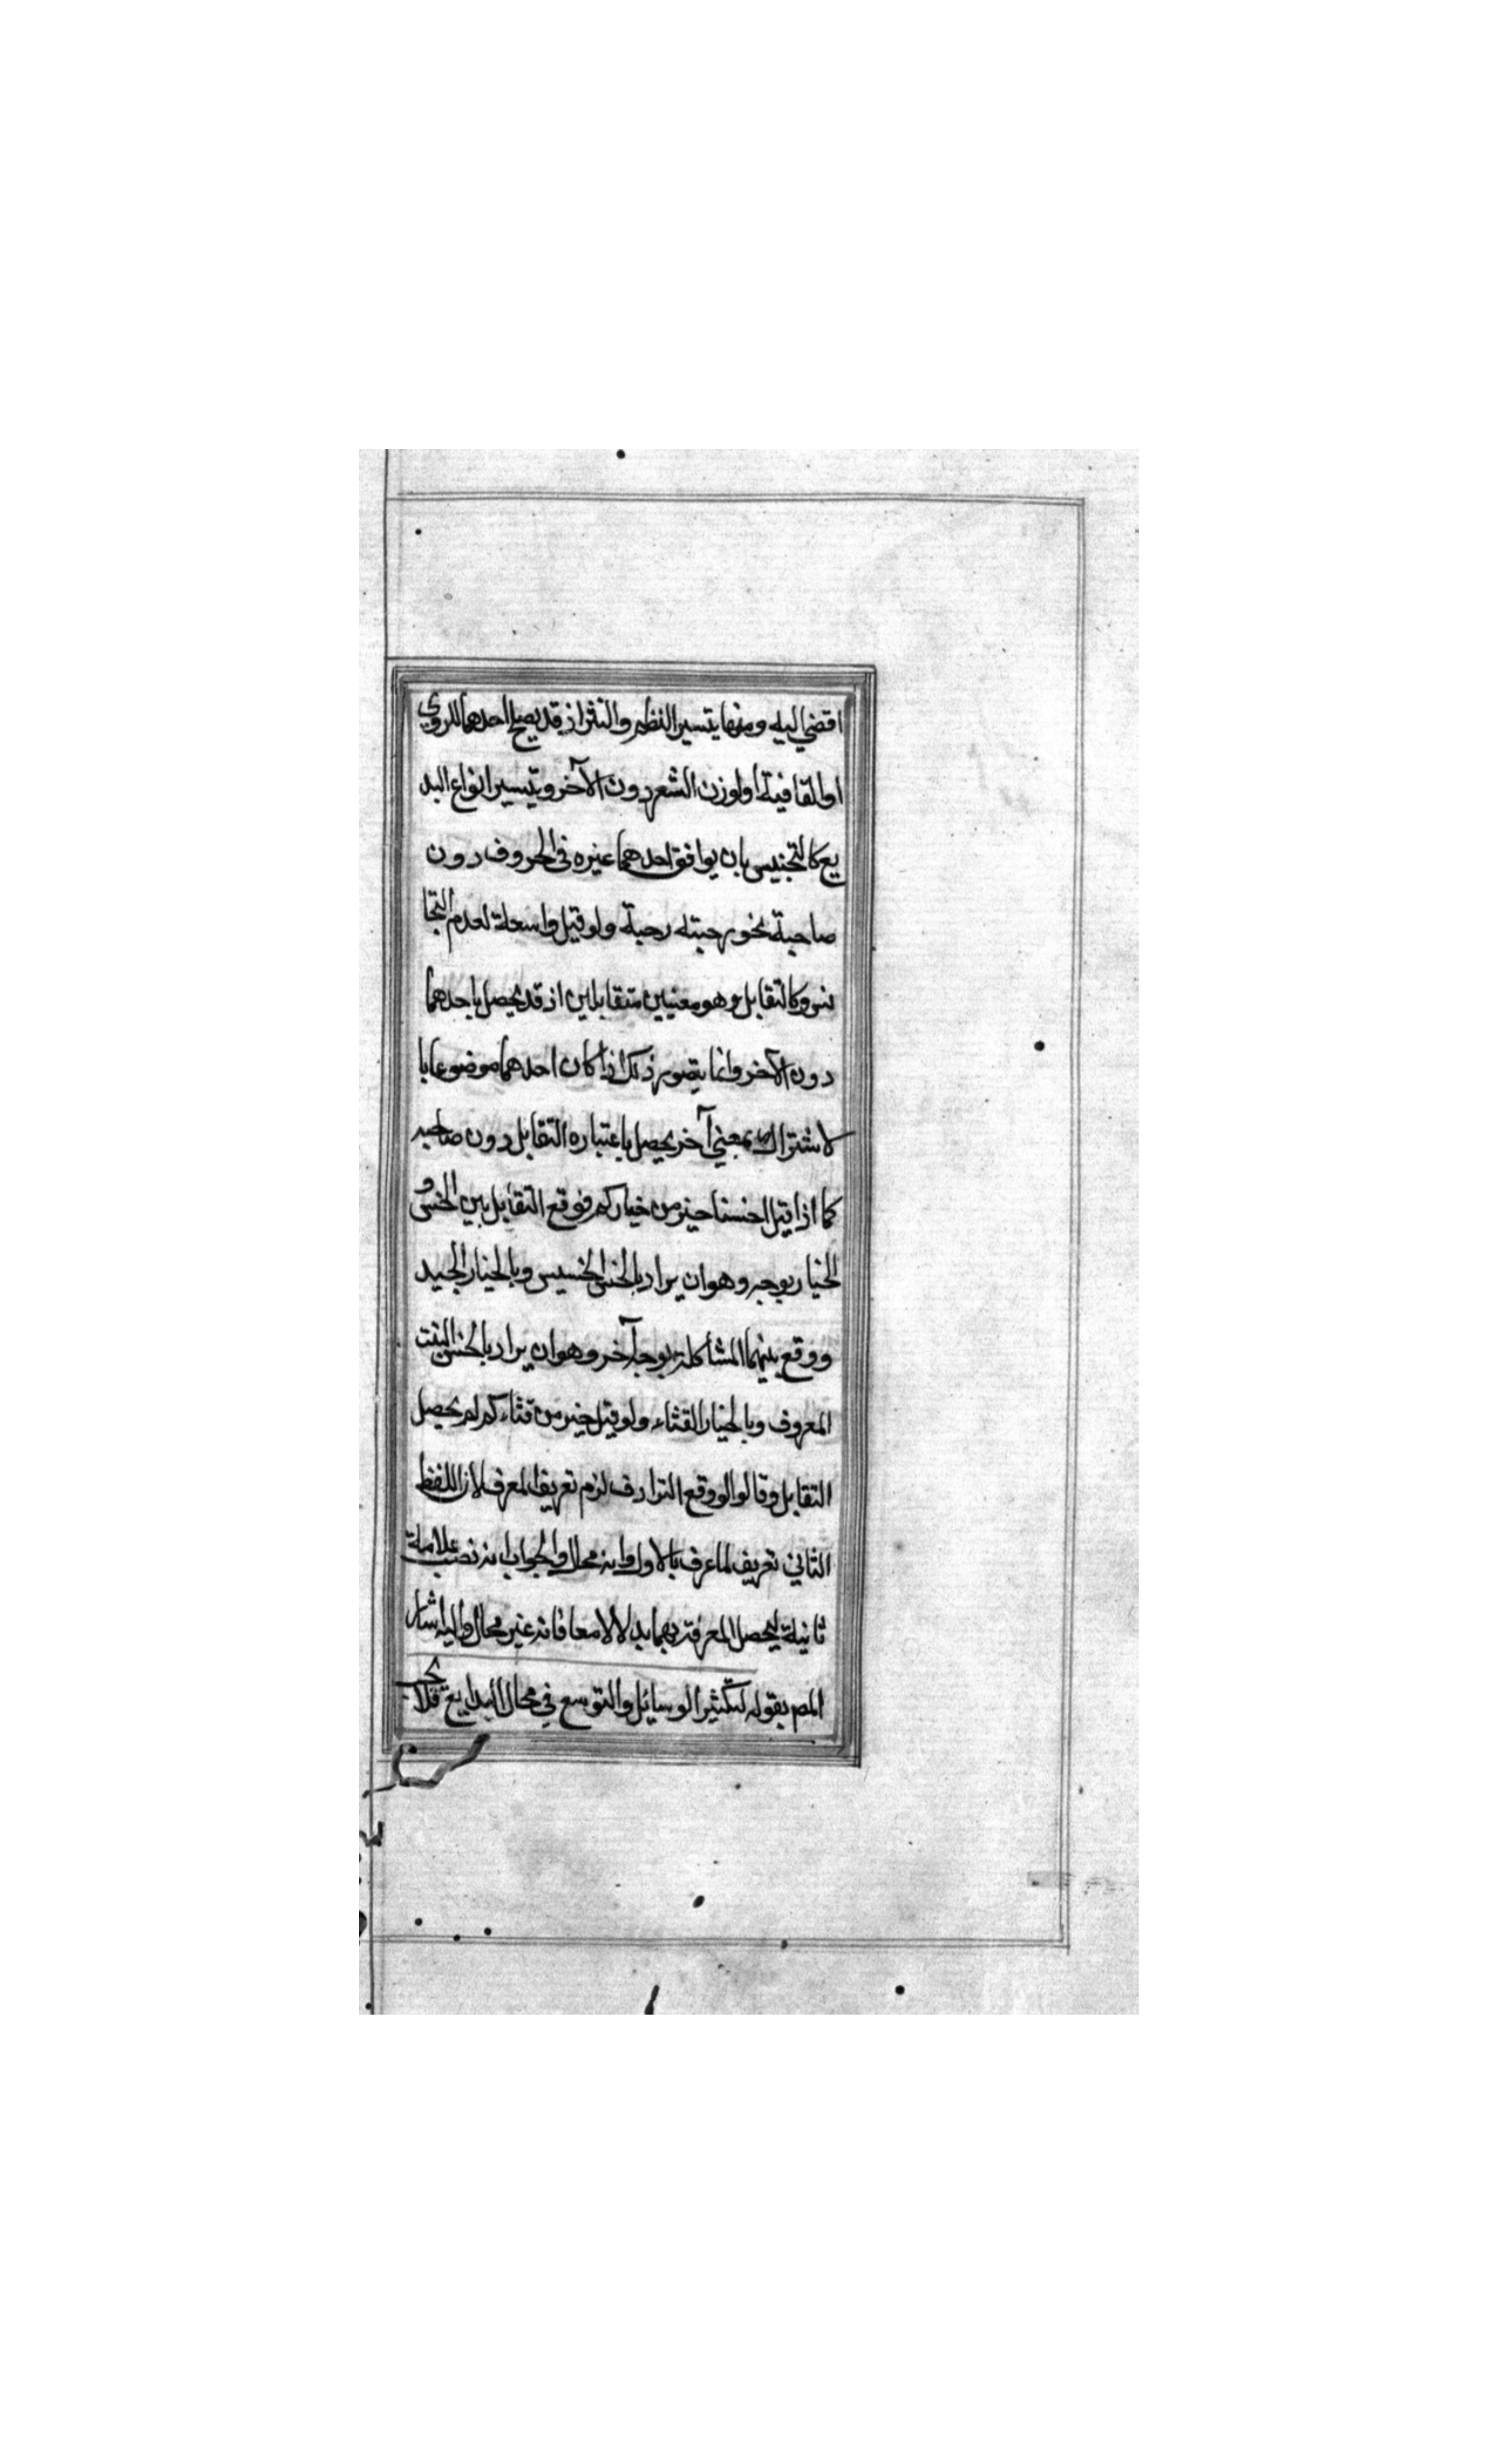 افضي اليه ومنها يتسير النظم والنثر اذ قد يصلح احدهما للروي
او القافية او لوزن الشعر دون الآخر وتيسير انواع البد
يع كالتجنيس بان يوافق احدهما غيره في الحروف دون
صاحبة نحو رحبته رحبة ولو قيل واسعة لعدم التجا
نس وكالتقابل وهو معنيين متقابلين اذ قد يحصل باحدهما
دون الآخر وانما يتصور ذلك اذا كان احدهما موضوعا با
لاشتراك بمعني آخر يحصل باعتباره التقابل دون صاحبه
كما اذا قيل احسنا خير من خياركم فوقع التقابل بين الخس و
الخيار بوجه وهو ان يراد بالخس الخسيس وبالخيار الجيد
ووقع بينهما المشاكلة بوجه آخر وهو ان يراد بالخس النبت
المعروف وبالخيار القثاء ولو قيل خير من قثاءكم لم يحصل
التقابل وقالوا لو وقع الترادف لزم تعريف المعرف لان اللفظ
الثاني تعريف لما عرف بالاول وانه محال والجواب انه نصب علامة
ثانية ليحصل المعرفة بهما بدلا لا معا فانه غير محال واليه اشار
المص بقوله لتكثير الوسائل والتوسع في محال البدايع فلا